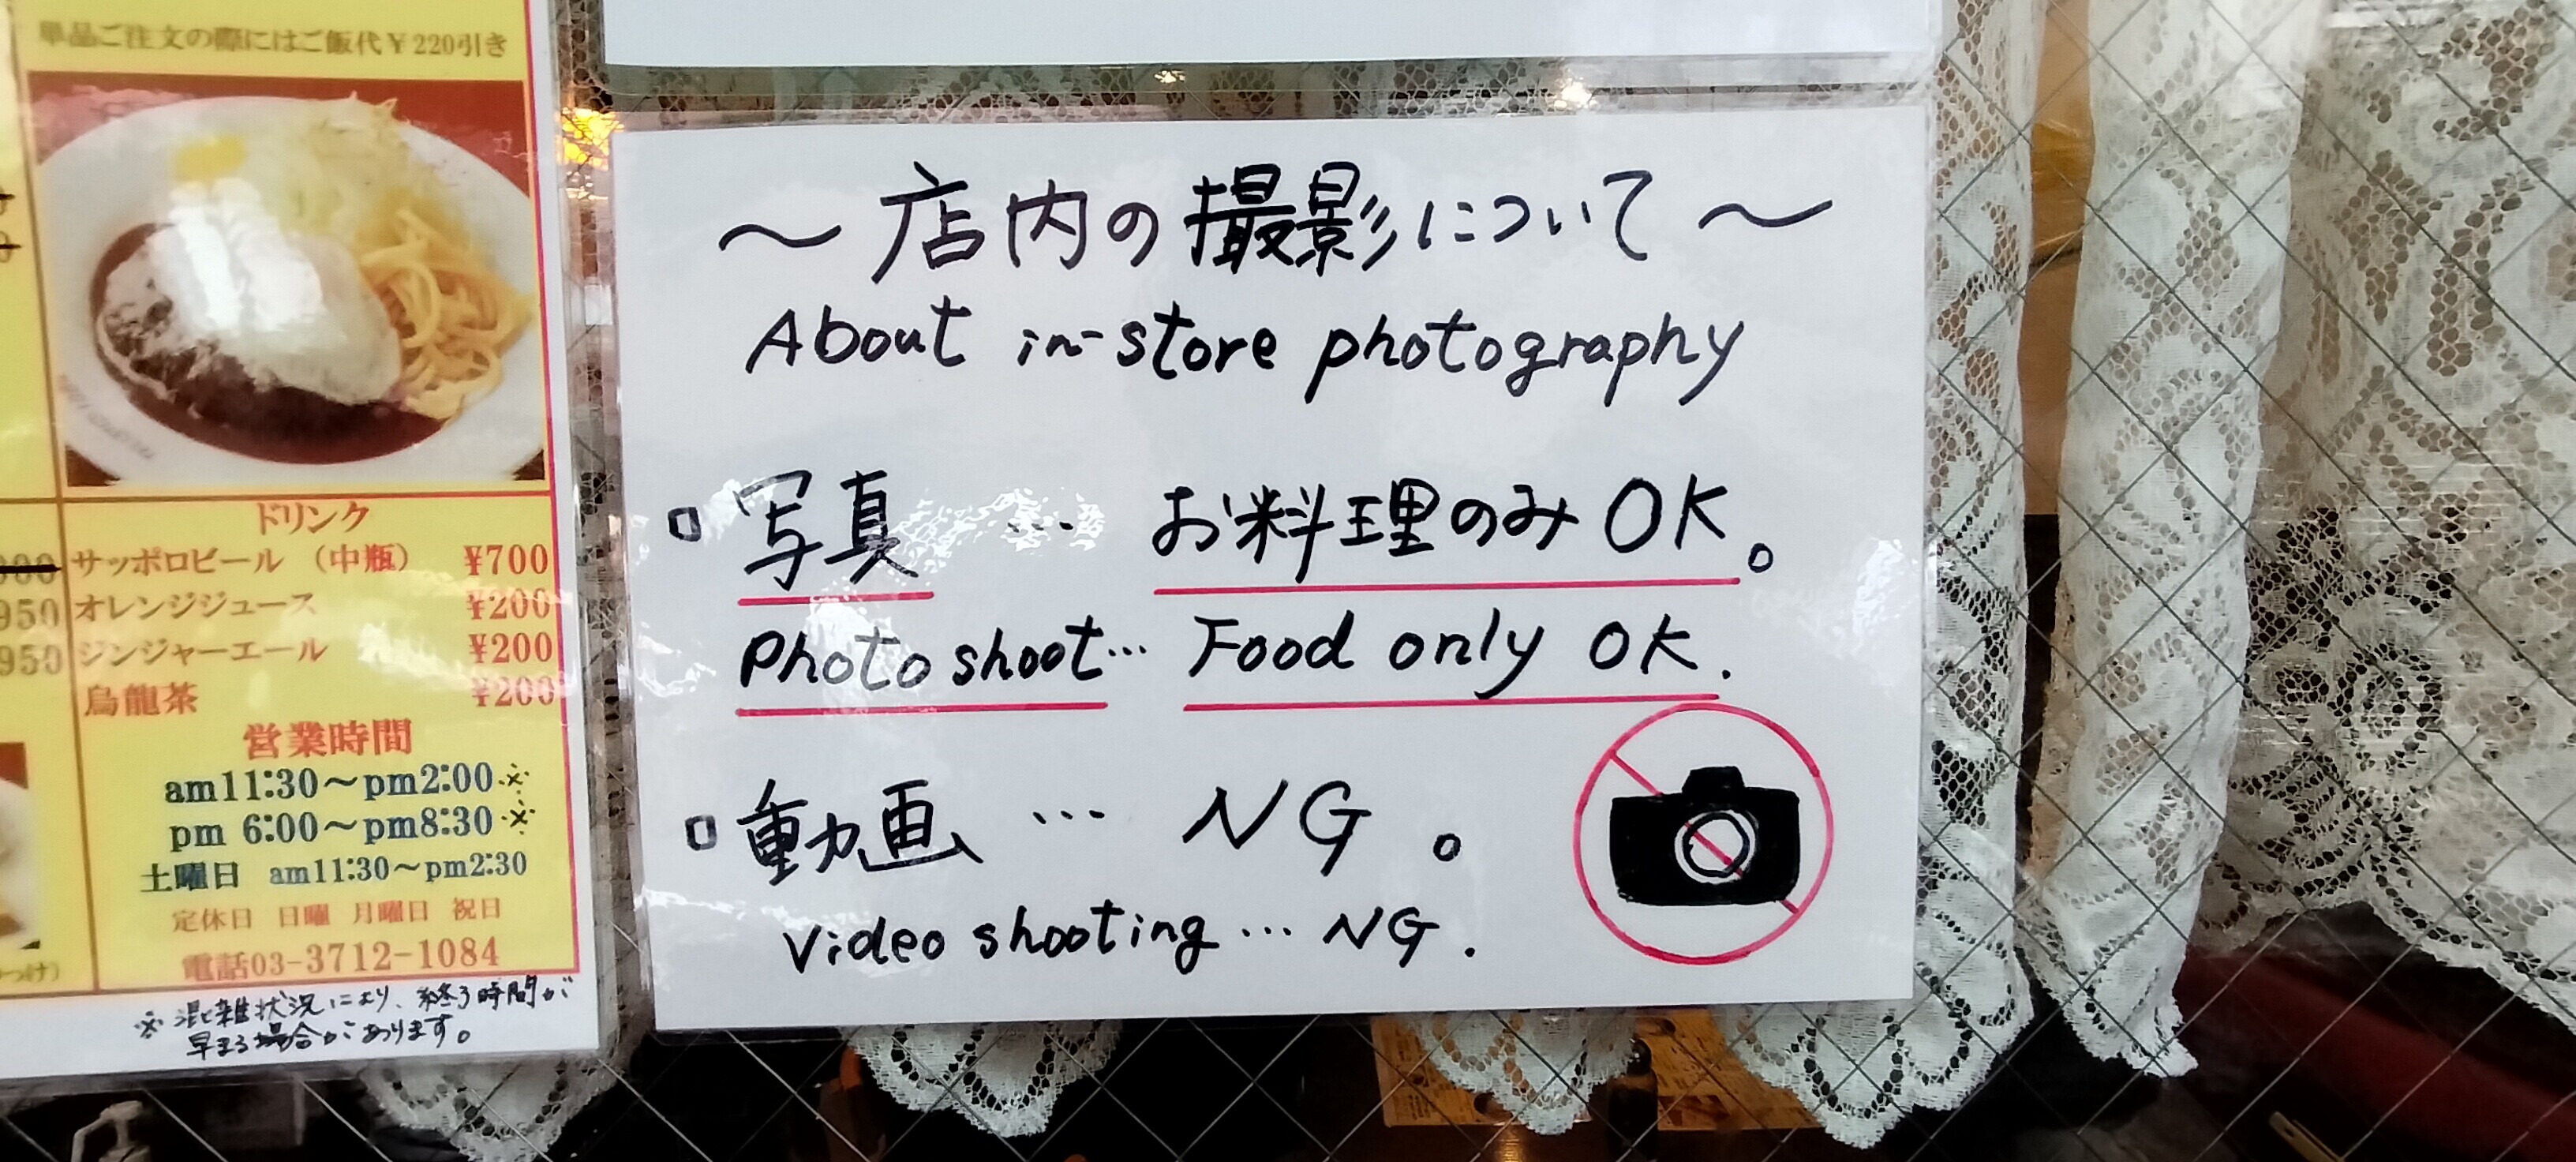 単品ご注文の際にはご飯代￥220引き
ドリンク
サッポロビール （中瓶） ¥700
オレンジジュース ¥200
ジンジャーエール ¥200
烏龍茶 ¥200
営業時間
am11:30～pm2:00※
pm 6:00～pm8:30※
土曜日 am11:30～pm2:30
定休日 日曜 月曜日 祝日
電話03-3712-1084
※混雑状況により、終了時間が
早まる場合があります。
950
950
～店内の撮影について～
About in-store photography
写真 … お料理のみOK。
Photo shoot… Food only OK.
動画 … NG。
Video shooting… NG.